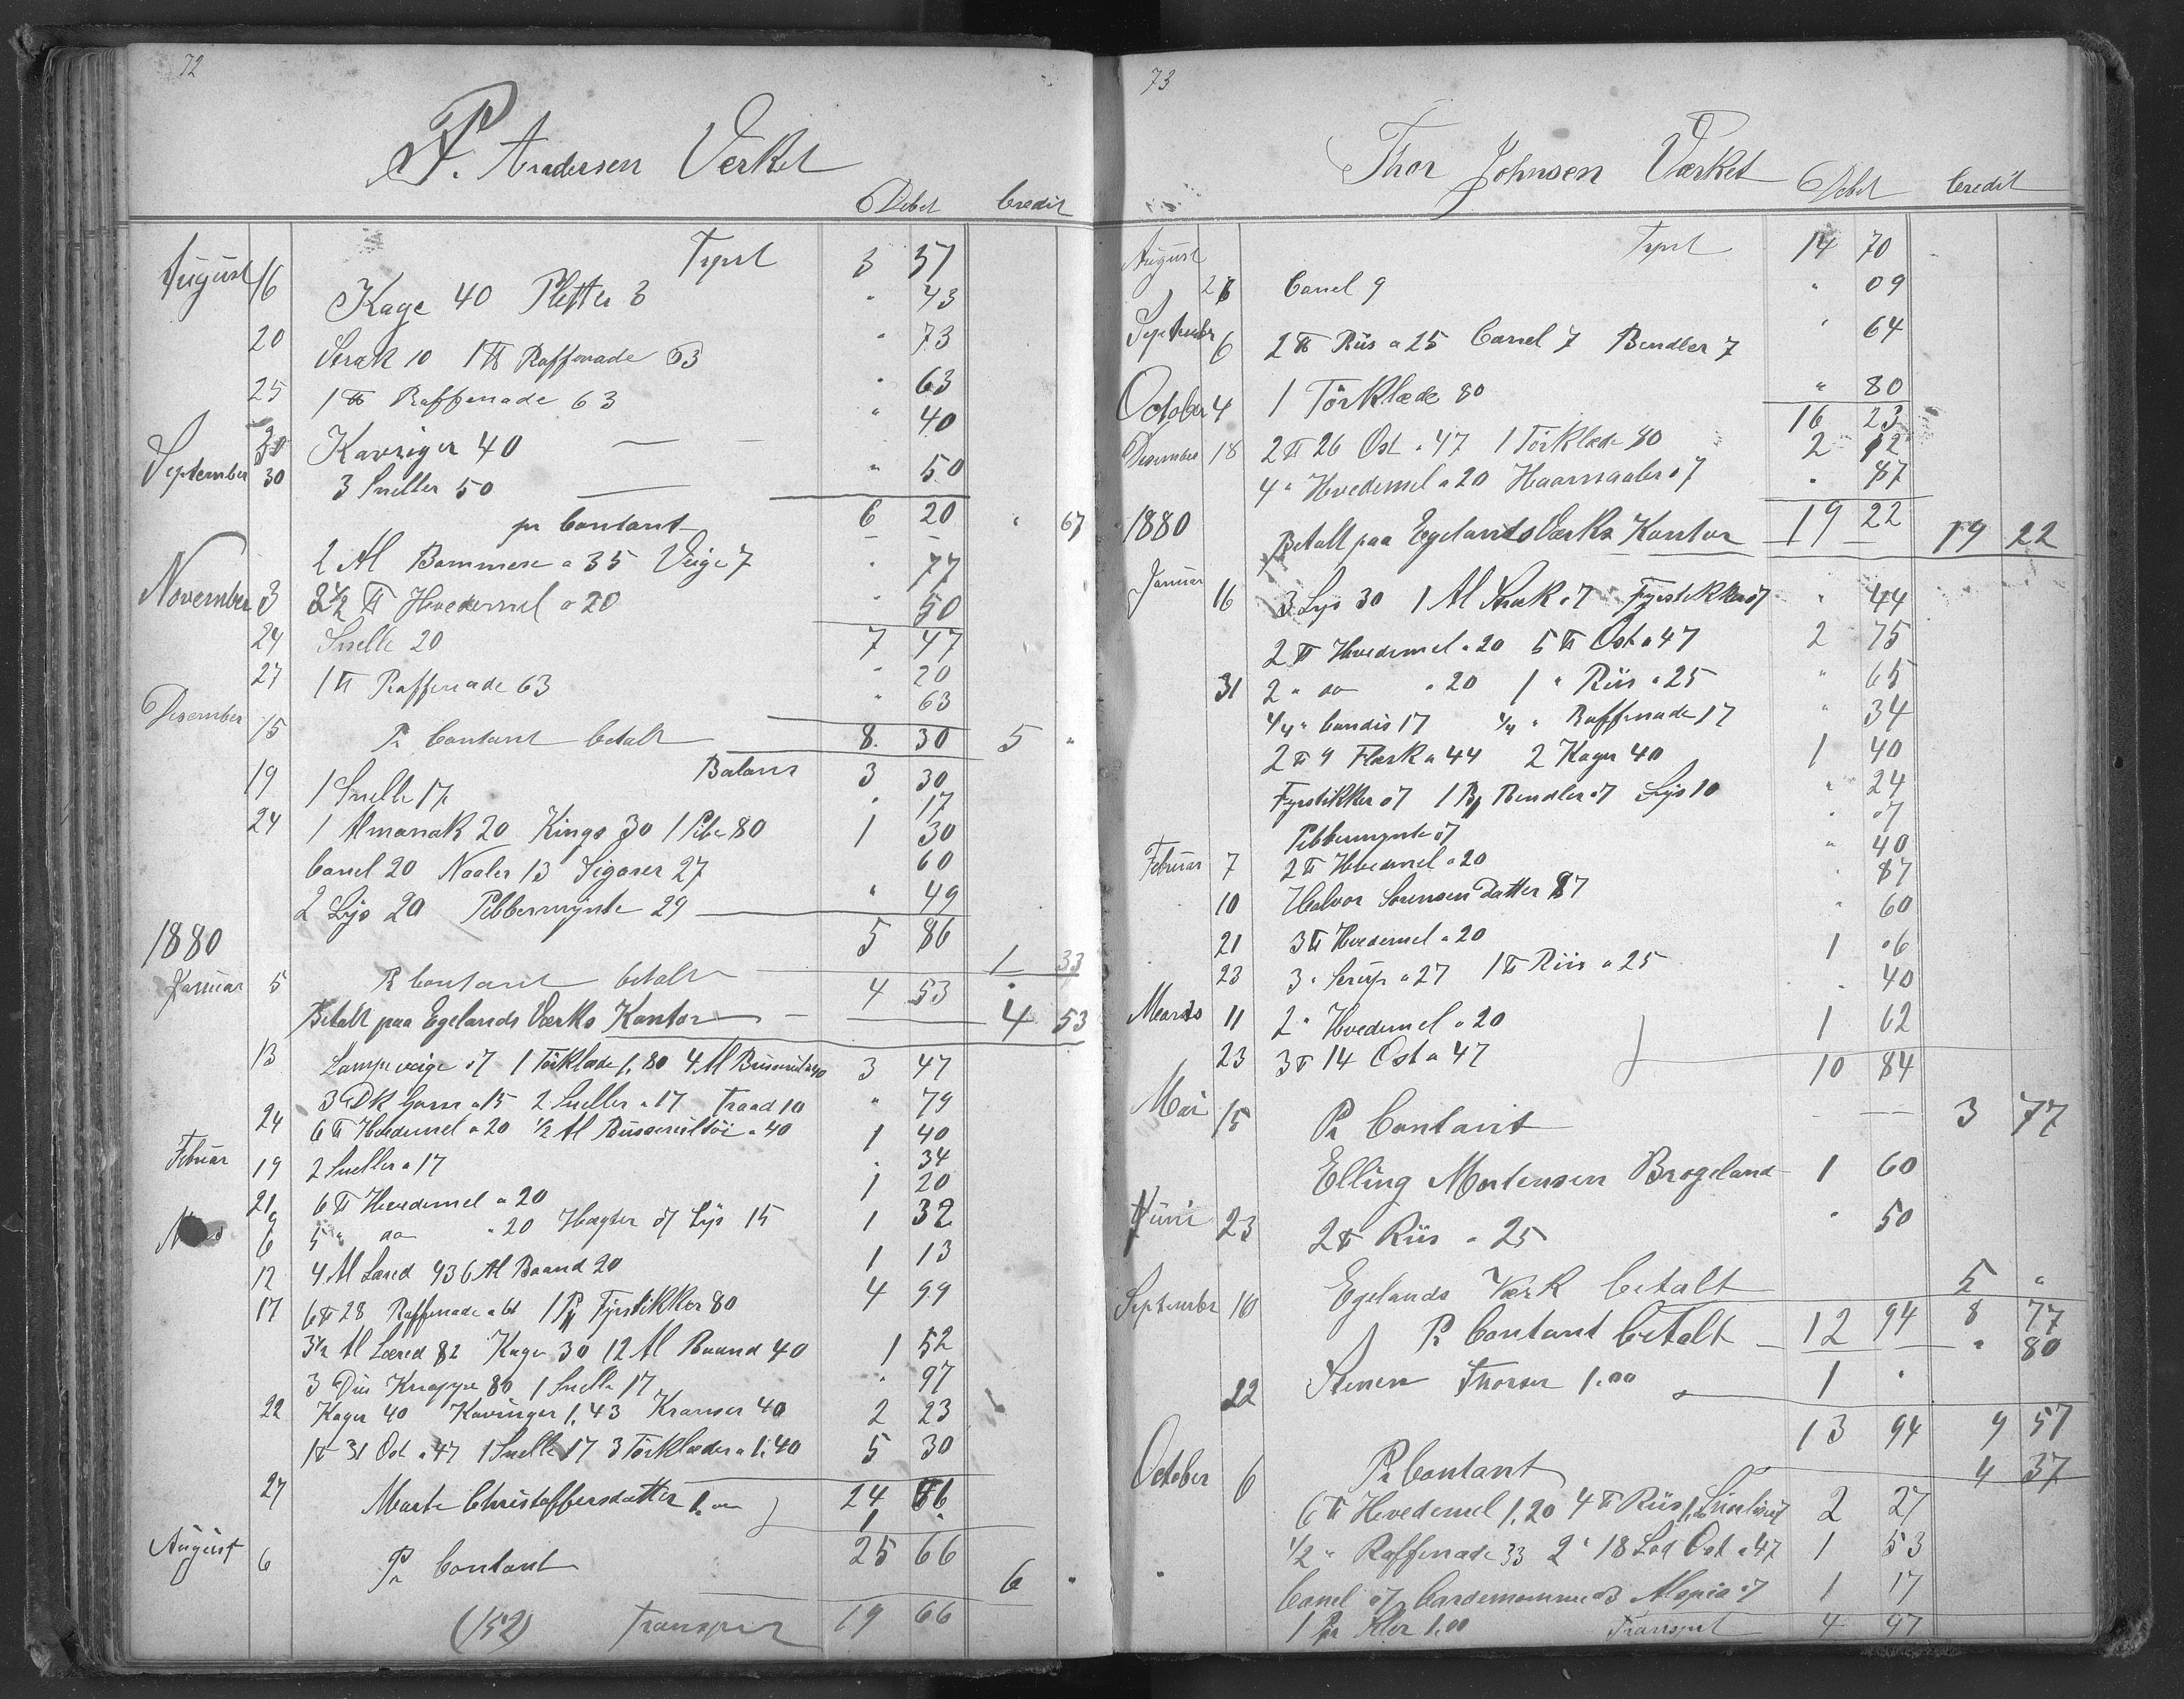 72
P. Andersen Verket
Debet Credit
August 16 Tspt 3 37
Kage 40 Pletter 3 " 43
20 Strak 10 1 ℔ Raffenade 63 " 73
25 1 ℔ Raffenade 63 " 63
30 Kavriger 40 " 40
September 30 3 Sneller 50 " 50
pr Contant 6 20 " 67
2 Al Bommese a 35 Veige 7 " 77
November 3 2½ ℔ Hvedemel a 20 " 50
7 47
24 Snelle 20 " 20
27 1 ℔ Raffenade 63 " 63
Desember 15 Pr Contant betalt 8 30 5 "
Balans 3 30
19 1 Snelle 17 " 17
24 1 Almanak 20 Kings 30 1 Pibe 80 1 30
Canel 20 Naaler 13 Sigarer 27 60
2 Lys 20 Pebbermynte 29 " 49
1880 5 86
Januar 5 Pr Contant betalt 1 33
4 53
Betalt paa Egelands Værks Kontor 4 53
13 Lampeveige 07 1 Törklæde 1,80 4 Al a 40 3 47
3 Dk Garn a 15 2 Sneller a 17 Traad 10 " 79
24 6 ℔ Hvedemel a 20 ½ Al a 40 1 40
Februar 19 2 Sneller a 17 " 34
21 6 ℔ Hvedemel a 20 1 20
6 5 " do " 20 Hægter 07 Lys 15 1 32
12 4 Al Læred 93 6 Al Baand 20 1 13
17 6 ℔ 28 Raffenade a 61 1 Pk Fyrstikker 80 4 99
3½ Al Læred 82 Kager 30 12 Al Baand 40 1 52
3 Dus Knappe 80 1 Snelle 17 " 97
22 Kager 40 Kavringer 1,43 Kranser 40 2 23
1 ℔ 31 Ost a 47 1 Snelle 17 3 Törklæder a 1,40 5 30
24 66
27 Marte Christoffersdatter 1.00 1 "
25 66
August 6 Pr Contant 6 "
(152) Transport 19 66
73
Thor Johnsen Værket
Debet Credit
August Tspt 14 70
28 Canel 9 " 09
September 6 2 ℔ Riis a 25 Canel 7 Bendler 7 " 64
October 4 1 Törklæde 80 " 80
16 23
Desember 18 2 ℔ 26 Ost a 47 1 Törklæde 80 2 12
4 " Hvedemel a 20 Haarnaaler 07 " 87
1880 19 22
Betalt paa Egelands Værks Kontor 19 22
Januar 16 3 Lys 30 1 Al Strak 07 Fyrstikker 07 " 44
2 ℔ Hvedemel a 20 5 ℔ Ost a 47 2 75
31 2 " do " 20 1 " Riis a 25 " 65
¼ " Candis 17 ¼ " Raffenade 17 " 34
2 ℔ 9 Flæsk a 44 2 Kager 40 1 40
Fyrstikker 07 1 Bendler 07 Lys 10 " 24
Pebbermynte 07 " 07
Februar 7 2 ℔ Hvedemel a 20 " 40
10 Halvor Sorensen Datter 87 " 87
21 3 ℔ Hvedemel a 20 " 60
23 3 " Sirup a 27 1 ℔ Riis a 25 1 06
Marts 11 2 " Hvedemel a 20 " 40
23 3 ℔ 14 Ost a 47 1 62
10 84
Mai 15 Pr Contant 3 77
Elling Mortensen Brogeland 1 60
Juni 23 2 ℔ Riis a 25 " 50
Egelands Værk betalt 5 "
September 10 Pr Contant betalt 12 94 8 77
" 80
22 Stenen Thorsen 1.00 1 "
13 94 9 57
October 6 Pr Contant 4 37
6 ℔ Hvedemel 1,20 4 ℔ Riis 2 27
½ " Raffenade 33 2 " 18 Lod Ost a 47 1 53
Canel 07 Cardemomme 03 07 1 17
1 Klør 1.00 Transport 4 97